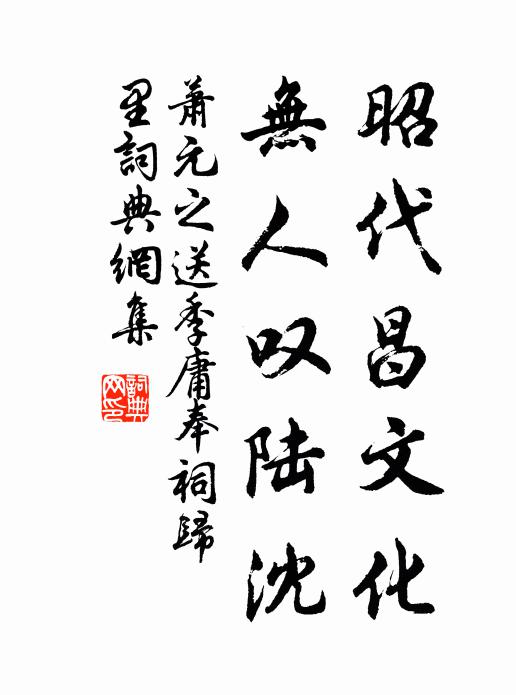 昭代昌文化
無人叹陆沈
萧元之送季庸奉祠歸
里詞典網集
詞典网印